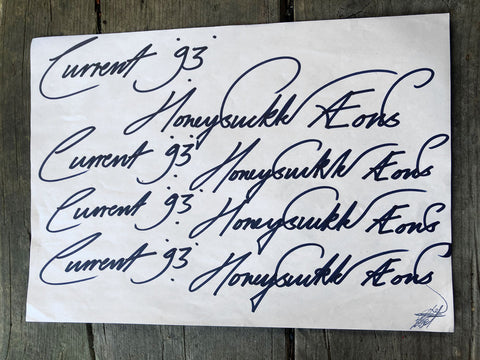 Current '93'
Honeysuckle Æons
Current '93' Honeysuckle Æons
Current '93' Honeysuckle Æons
Current '93' Honeysuckle Æons